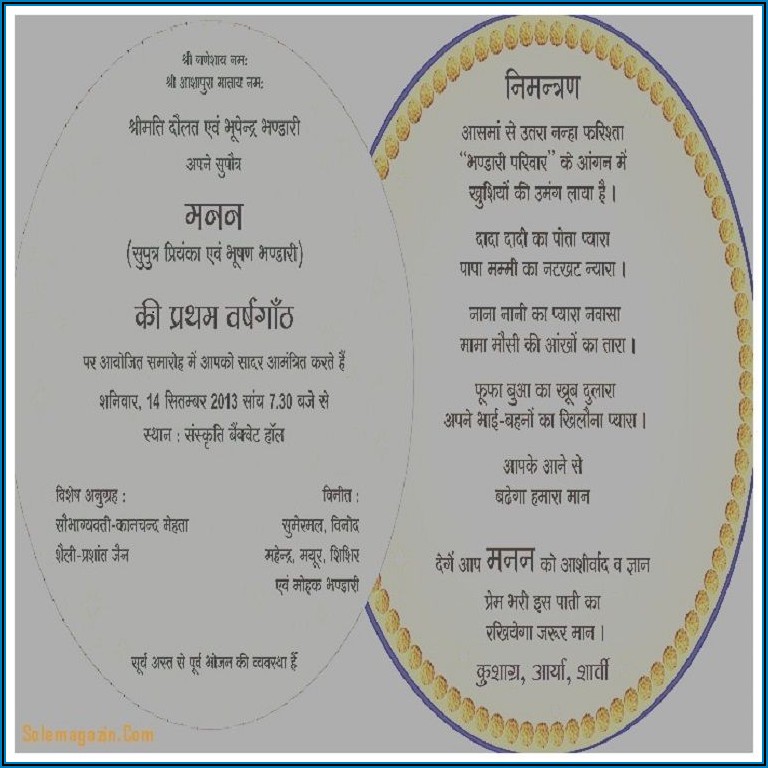 श्री गणेशाय नम:
श्री आशापुरा माताय नम:
श्रीमति दौलत एवं भूपेन्द्र भण्डारी
अपने सुपौत्र
मनन
(सुपुत्र प्रियंका एवं भूषण भण्डारी)
की प्रथम वर्षगाँठ
पर आयोजित समारोह में आपको सादर आमंत्रित करते हैं
शनिवार, 14 सितम्बर 2013 सांय 7.30 बजे से
स्थान : संस्कृति बैंक्वेट हॉल
विशेष अनुग्रह :
सौभाग्यवती-कानचन्द मेहता
शैली-प्रशांत जैन
विनीत :
सुमेरमल, विनोद
महेन्द्र, मयूर, शिशिर
एवं मोहक भण्डारी
सूर्य अस्त से पूर्व भोजन की व्यवस्था हैं
निमन्त्रण
आसमां से उतरा नन्हा फरिश्ता
“भण्डारी परिवार” के आंगन में
खुशियों की उमंग लाया है ।
दादा दादी का पोता प्यारा
पापा मम्मी का नटखट न्यारा ।
नाना नानी का प्यारा नवासा
मामा मौसी की आंखों का तारा ।
फूफा बुआ का खूब दुलारा
अपने भाई-बहनों का खिलौना प्यारा ।
आपके आने से
बढ़ेगा हमारा मान
देगें आप मनन को आशीर्वाद व ज्ञान
प्रेम भरी इस पाती का
रखियेगा जरूर मान ।
कुशाग्र, आर्या, शार्वी
Solemagazin.Com